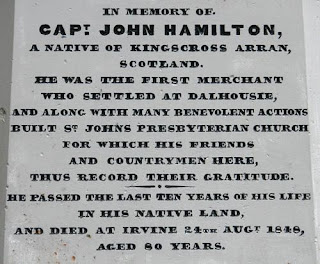 IN MEMORY OF.
CAPT. JOHN HAMILTON,
A NATIVE OF KINGSCROSS ARRAN,
SCOTLAND.
HE WAS THE FIRST MERCHANT
WHO SETTLED AT DALHOUSIE,
AND ALONG WITH MANY BENEVOLENT ACTIONS
BUILT ST. JOHNS PRESBYTERIAN CHURCH
FOR WHICH HIS FRIENDS
AND COUNTRYMEN HERE,
THUS RECORD THEIR GRATITUDE.
HE PASSED THE LAST TEN YEARS OF HIS LIFE
IN HIS NATIVE LAND,
AND DIED AT IRVINE 24TH AUGT. 1848,
AGED 80 YEARS.